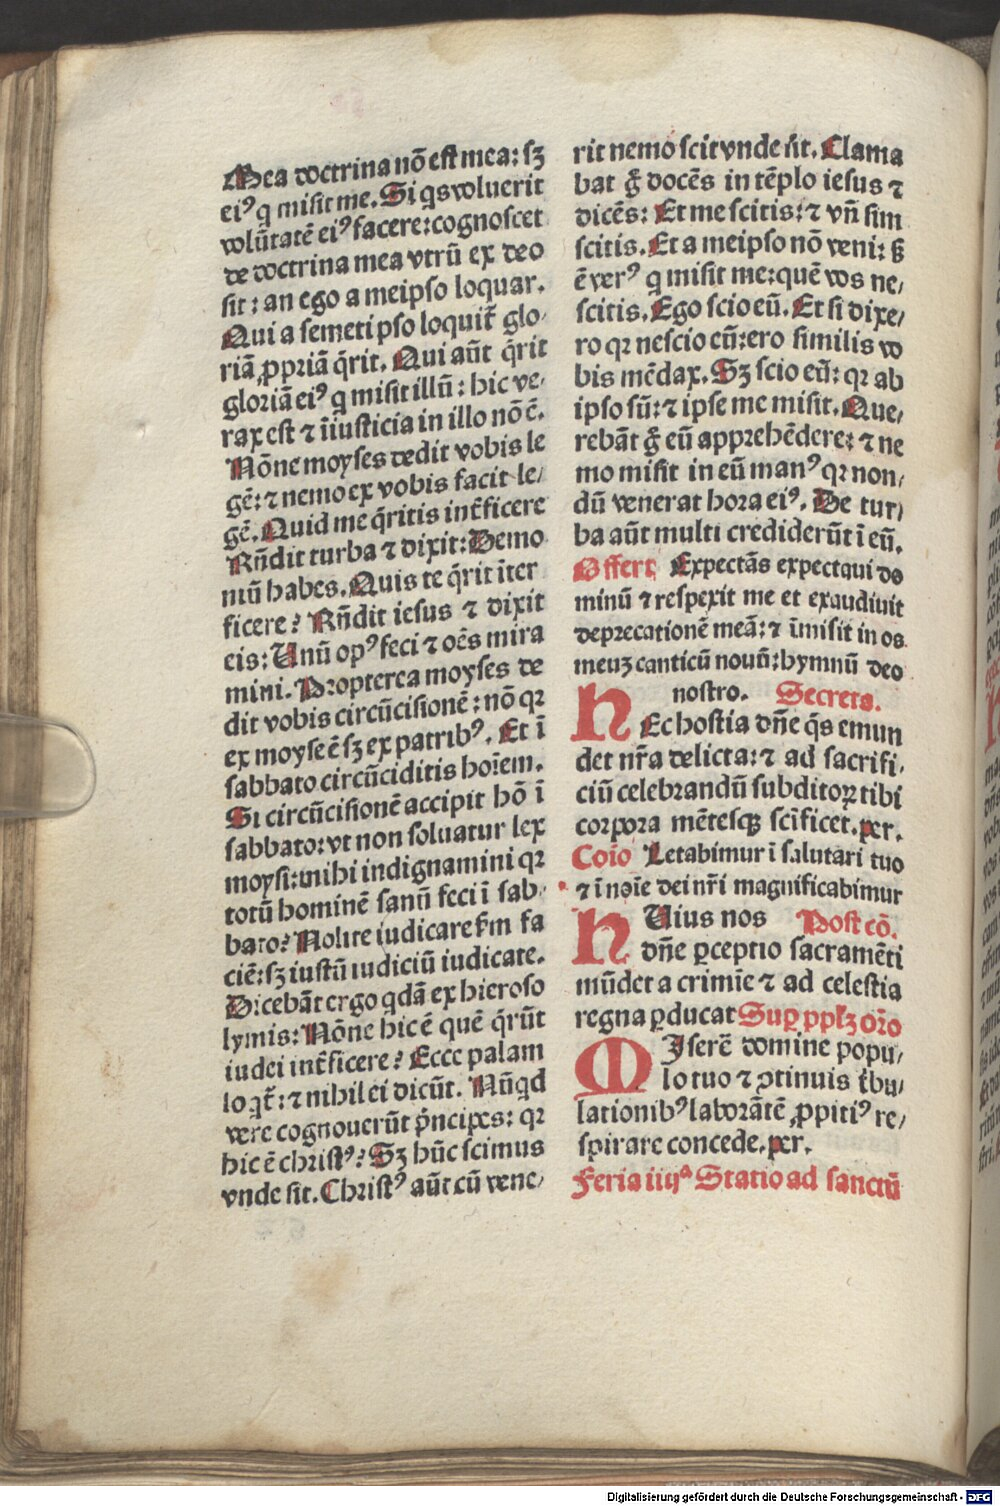 Mea doctrina nō est mea: sꝫ
eiꝰ q̄ misit me. Si q̇s voluerit
volūtatē eiꝰ facere: cognoscet
de doctrina mea vtrū ex deo
sit: an ego a meipso loquar.
Qui a semetipso loquit̄ glo-
riā ꝓpriā q̄rit. Qui aūt q̄rit
gloriā eiꝰ q̄ misit illū: hic ve-
rax est ⁊ īiusticia in illo nō ē.
Nōne moyses dedit vobis le
gē: ⁊ nemo ex vobis facit le-
gē. Quid me q̄ritis int̄ficere
Rn̄dit turba ⁊ dixit: Demo
niū habes. Quis te q̄rit īter
ficere? Rn̄dit iesus ⁊ dixit
eis: Unū opꝰ feci ⁊ oēs mira
mini. Propterea moyses de
dit vobis circūcisionē: nō qꝛ
ex moyse ē sꝫ ex patribꝰ. Et ī
sabbato circūciditis hoīem.
Si circūcisionē accipit hō ī
sabbato: vt non soluatur lex
moysi: mihi indignamini qꝛ
totū hominē sanū feci ī sab-
bato? Nolite iudicare ẜm fa
ciē: sꝫ iustū iudiciū iudicate.
Dicebāt ergo q̇dā ex hieroso
lymis: Nōne hic ē quē q̄rūt
iudei int̄ficere? Ecce palam
loqt̄: ⁊ nihil ei dicūt. Nūq̇d
vere cognouerūt p̄ncipes: qꝛ
hic ē christꝰ? Sꝫ hūc scimus
vnde sit. Christꝰ aūt cū vene-
rit nemo scit vnde sit. Clama
bat g̊ docēs in tēplo iesus ⁊
dicēs: Et me scitis: ⁊ vn̄ sim
scitis. Et a meipso nō veni: sꝫ
ē verꝰ q̄ misit me: quē vos ne-
scitis. Ego scio eū. Et si dixe-
ro qꝛ nescio eū: ero similis vo
bis mēdax. Sꝫ scio eū: qꝛ ab
ipso sū: ⁊ ipse me misit. Que-
rebāt g̊ eū apprehēdere: ⁊ ne
mo misit in eū manꝰ qꝛ non-
dū venerat hora eiꝰ. De tur-
ba aūt multi crediderūt ī eū.
Offert Expectās expectaui do
minū ⁊ respexit me et exaudiuit
deprecationē meā: ⁊ īmisit in os
meuꝫ canticū nouū: hymnū deo
nostro. Secreta.
HEc hostia dn̄e q̄s emun
det nr̄a delicta: ⁊ ad sacrifi-
ciū celebrandū subditoꝝ tibi
corpora mētesqꝫ sc̄ificet. per.
Coīo Letabimur ī salutari tuo
⁊ ī noīe dei nr̄i magnificabimur
HUius nos Post cō.
dn̄e ꝑceptio sacramēti
mūdet a crimīe ⁊ ad celestia
regna ꝑducat Suꝑ pplꝫ or̄o
MIserē domine popu-
lo tuo ⁊ ꝯtinuis t̄bu-
lationibꝰ laborātē ꝓpitiꝰ re-
spirare concede. per.
Feria iiijᵃ Statio ad sanctū
Digitalisierung gefördert durch die Deutsche Forschungsgemeinschaft - DFG